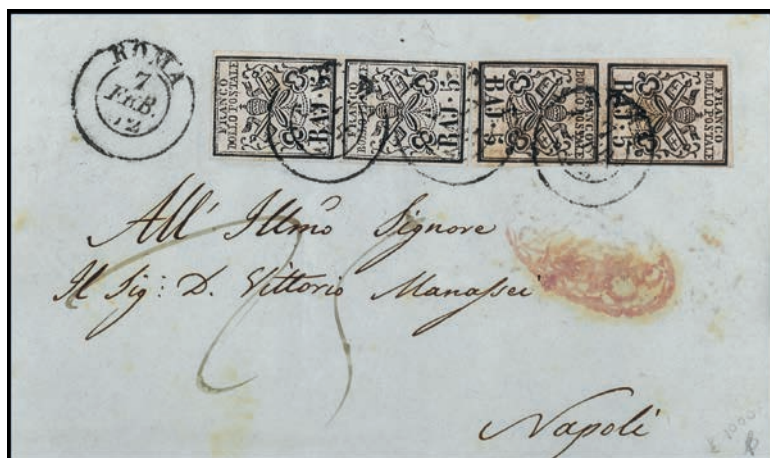 ROMA
7
FEB.
FRANCO
BOLLO POSTALE
BAJ: 5
FRANCO
BOLLO POSTALE
BAJ: 5
FRANCO
BOLLO POSTALE
BAJ: 5
FRANCO
BOLLO POSTALE
BAJ: 5
All' Illmo Signore
Il Sig: D. Vittorio Manaſsei
Napoli